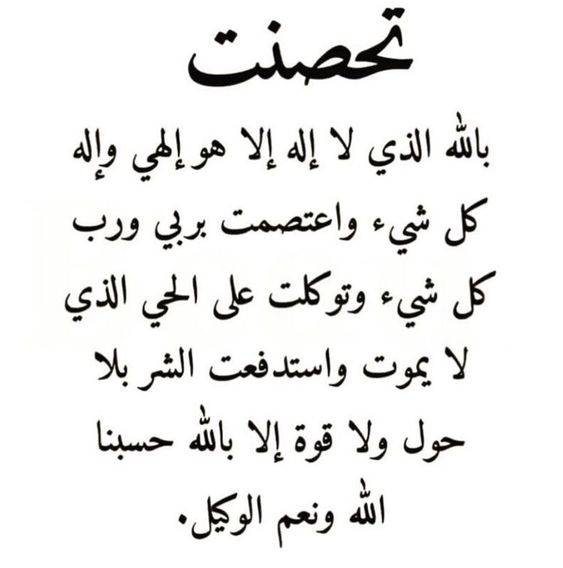 تحصنت
بالله الذي لا إله إلا هو إلهي وإله
كل شيء واعتصمت بربي ورب
كل شيء وتوكلت على الحي الذي
لا يموت واستدفعت الشر بلا
حول ولا قوة إلا بالله حسبنا
الله ونعم الوكيل.